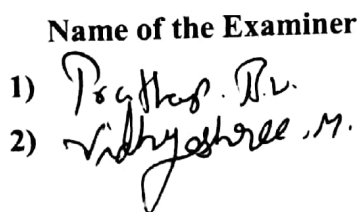 Name of the Examiner
1) Prathap. B.V.
2) Vidhyashree .M.